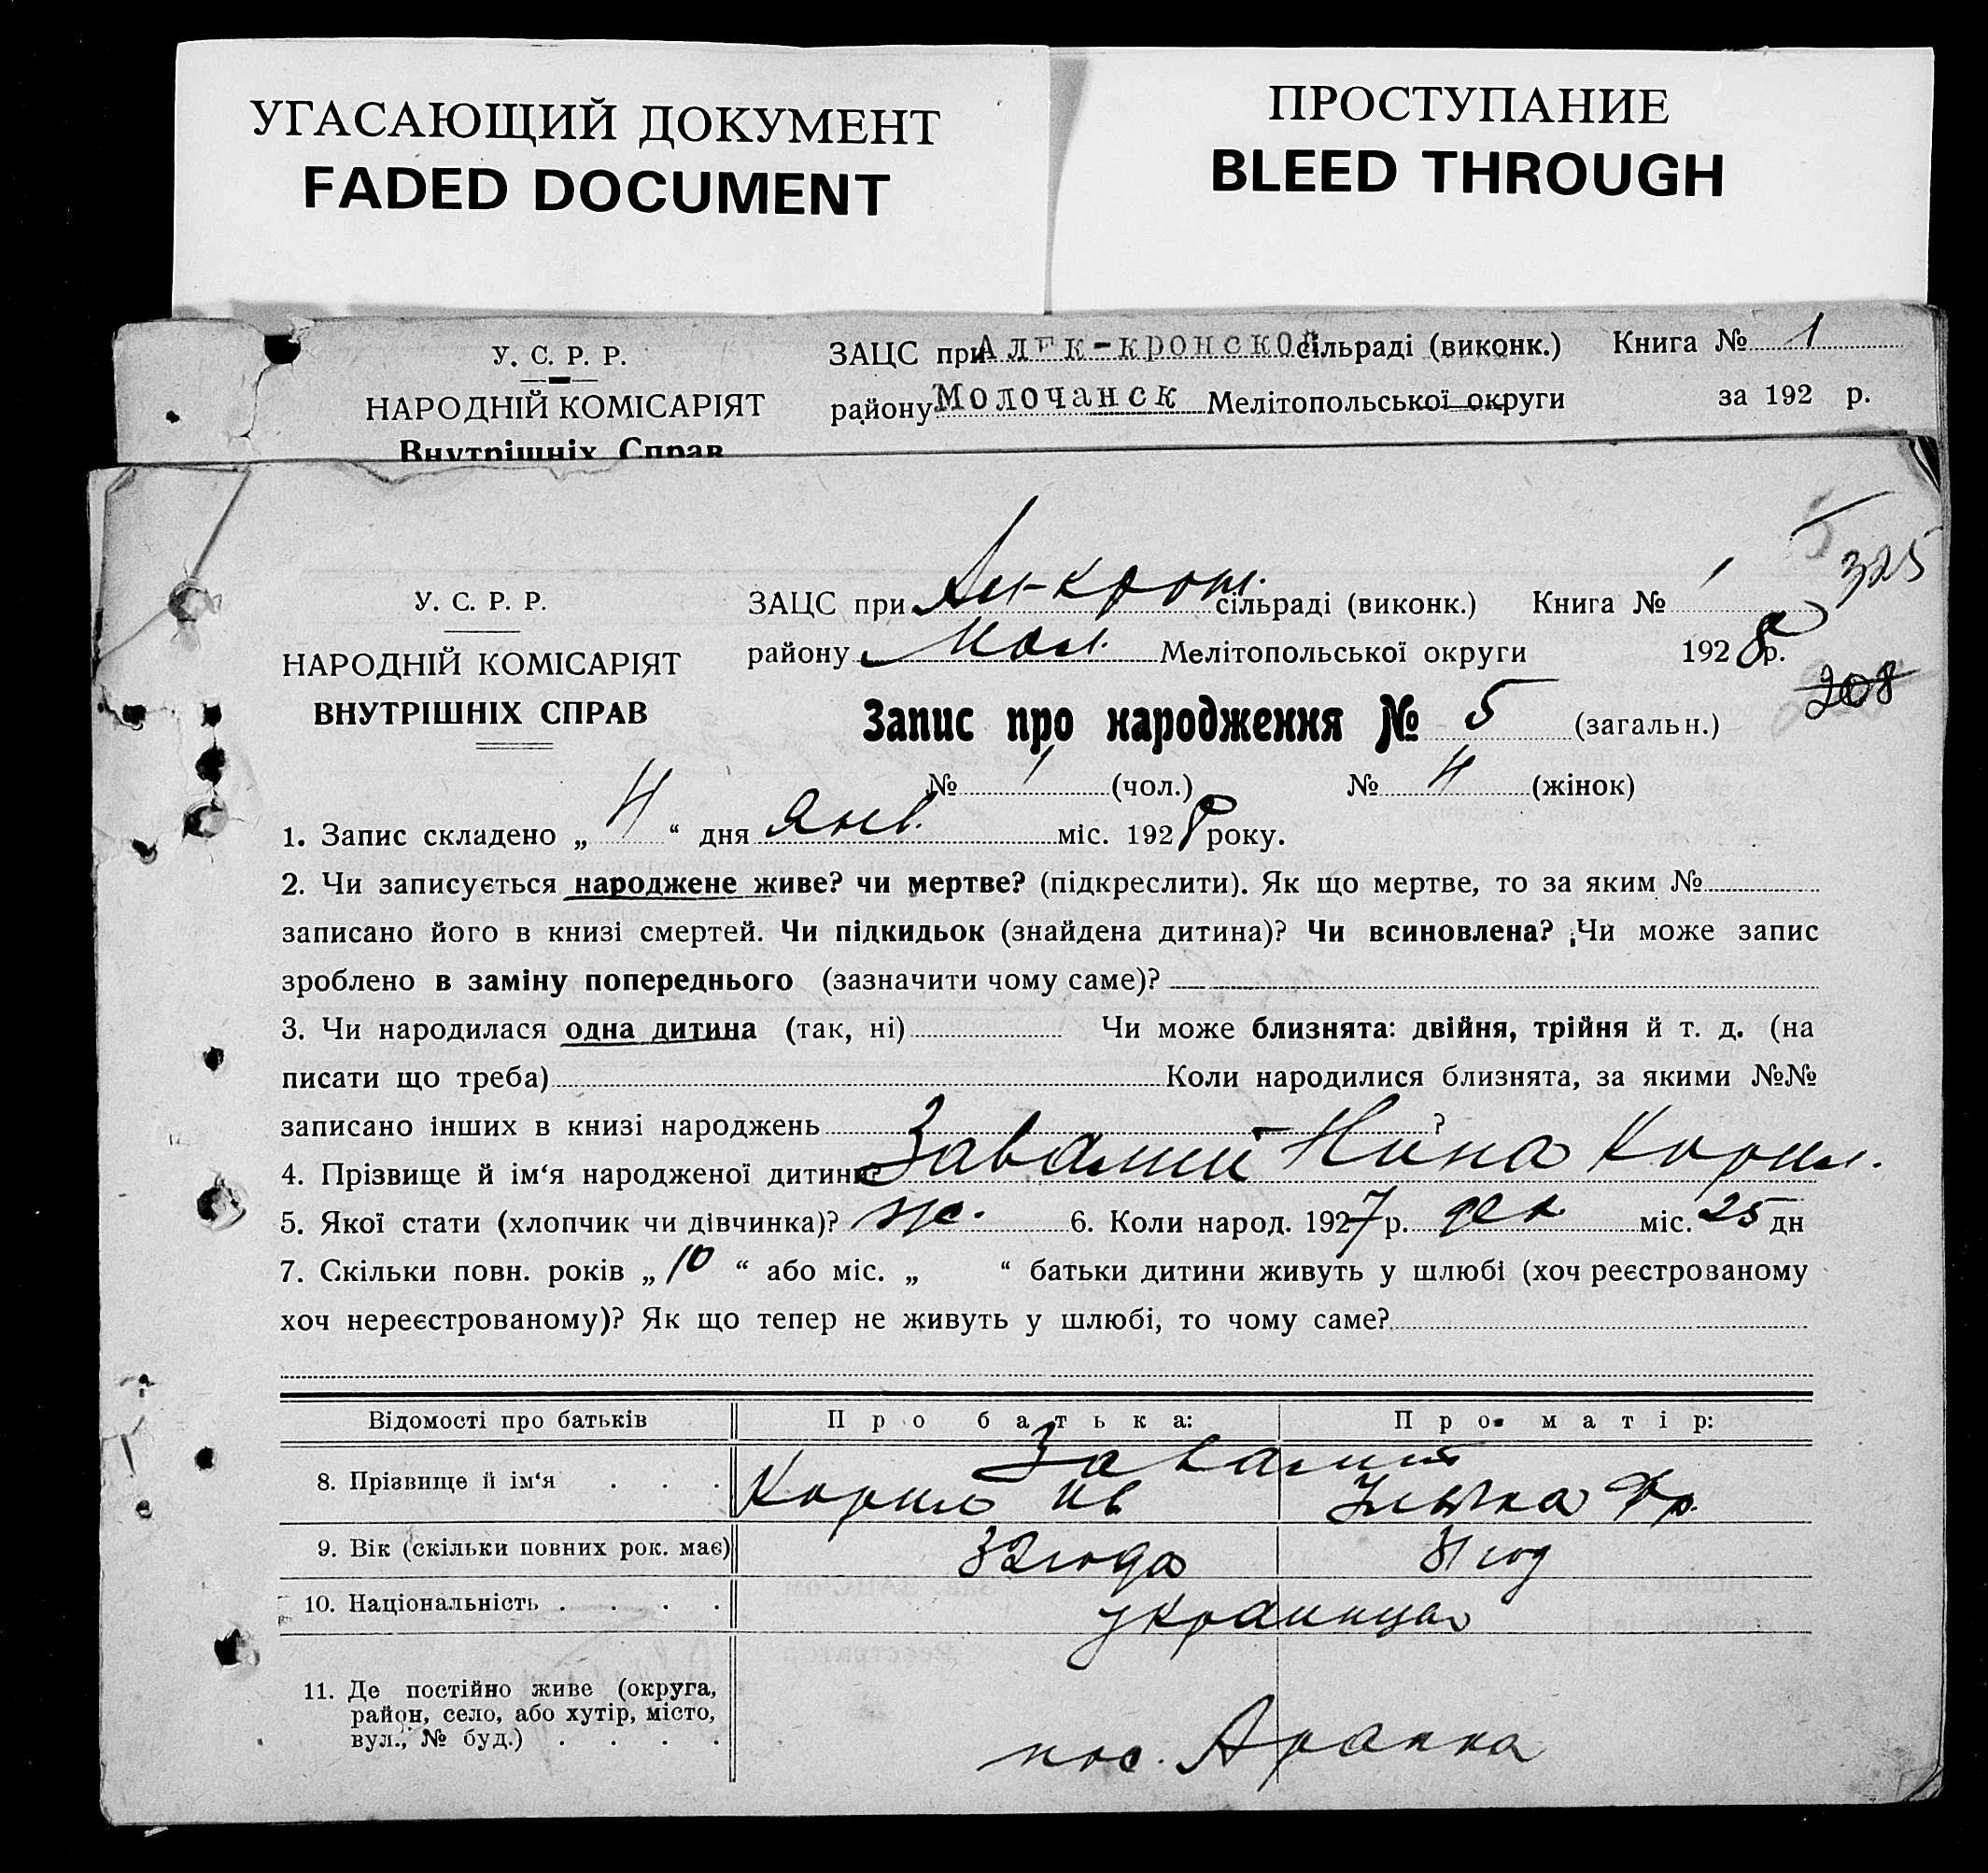 УГАСАЮЩИЙ ДОКУМЕНТ
FADED DOCUMENT
ПРОСТУПАНИЕ
BLEED THROUGH
У. С. Р. Р.
НАРОДНІЙ КОМІСАРІЯТ
Внутрішніх Справ
ЗАЦС при Алек-кронской сільраді (виконк.) Книга № 1
району Молочанск Мелітопольської округи за 192 р.
325
У. С. Р. Р.
НАРОДНІЙ КОМІСАРІЯТ
ВНУТРІШНІХ СПРАВ
ЗАЦС при Ал-крон. сільраді (виконк.) Книга № 1
району Мол. Мелітопольської округи 1928 р.
208
Запис про народження № 5 (загальн.)
№ 1 (чол.) № 4 (жінок)
1. Запис складено „ 4 “ дня янв. міс. 1928 року.
2. Чи записується народжене живе? чи мертве? (підкреслити). Як що мертве, то за яким №
записано його в книзі смертей. Чи підкидьок (знайдена дитина)? Чи всиновлена? Чи може запис
зроблено в заміну попереднього (зазначити чому саме)?
3. Чи народилася одна дитина (так, ні) Чи може близнята: двійня, трійня й т. д. (на
писати що треба) Коли народилися близнята, за якими №№
записано інших в книзі народжень ?
4. Прізвище й ім‘я народженої дитини? Нина Корил.
5. Якої стати (хлопчик чи дівчинка)? ж. 6. Коли народ. 1927 р. дек міс. 25 дн
7. Скільки повн. років „ 10 “ або міс. „ “ батьки дитини живуть у шлюбі (хоч реєстрованому
хоч нереєстрованому)? Як що тепер не живуть у шлюбі, то чому саме?
Відомості про батьків Про батька: Про матір:
8. Прізвище й ім‘я . . . Корил Ив
9. Вік (скільки повних рок. має) 32 года 31 год
10. Національність . . . . украинцы
11. Де постійно живе (округа,
район, село, або хутір, місто,
вул., № буд.) . . . . пос.